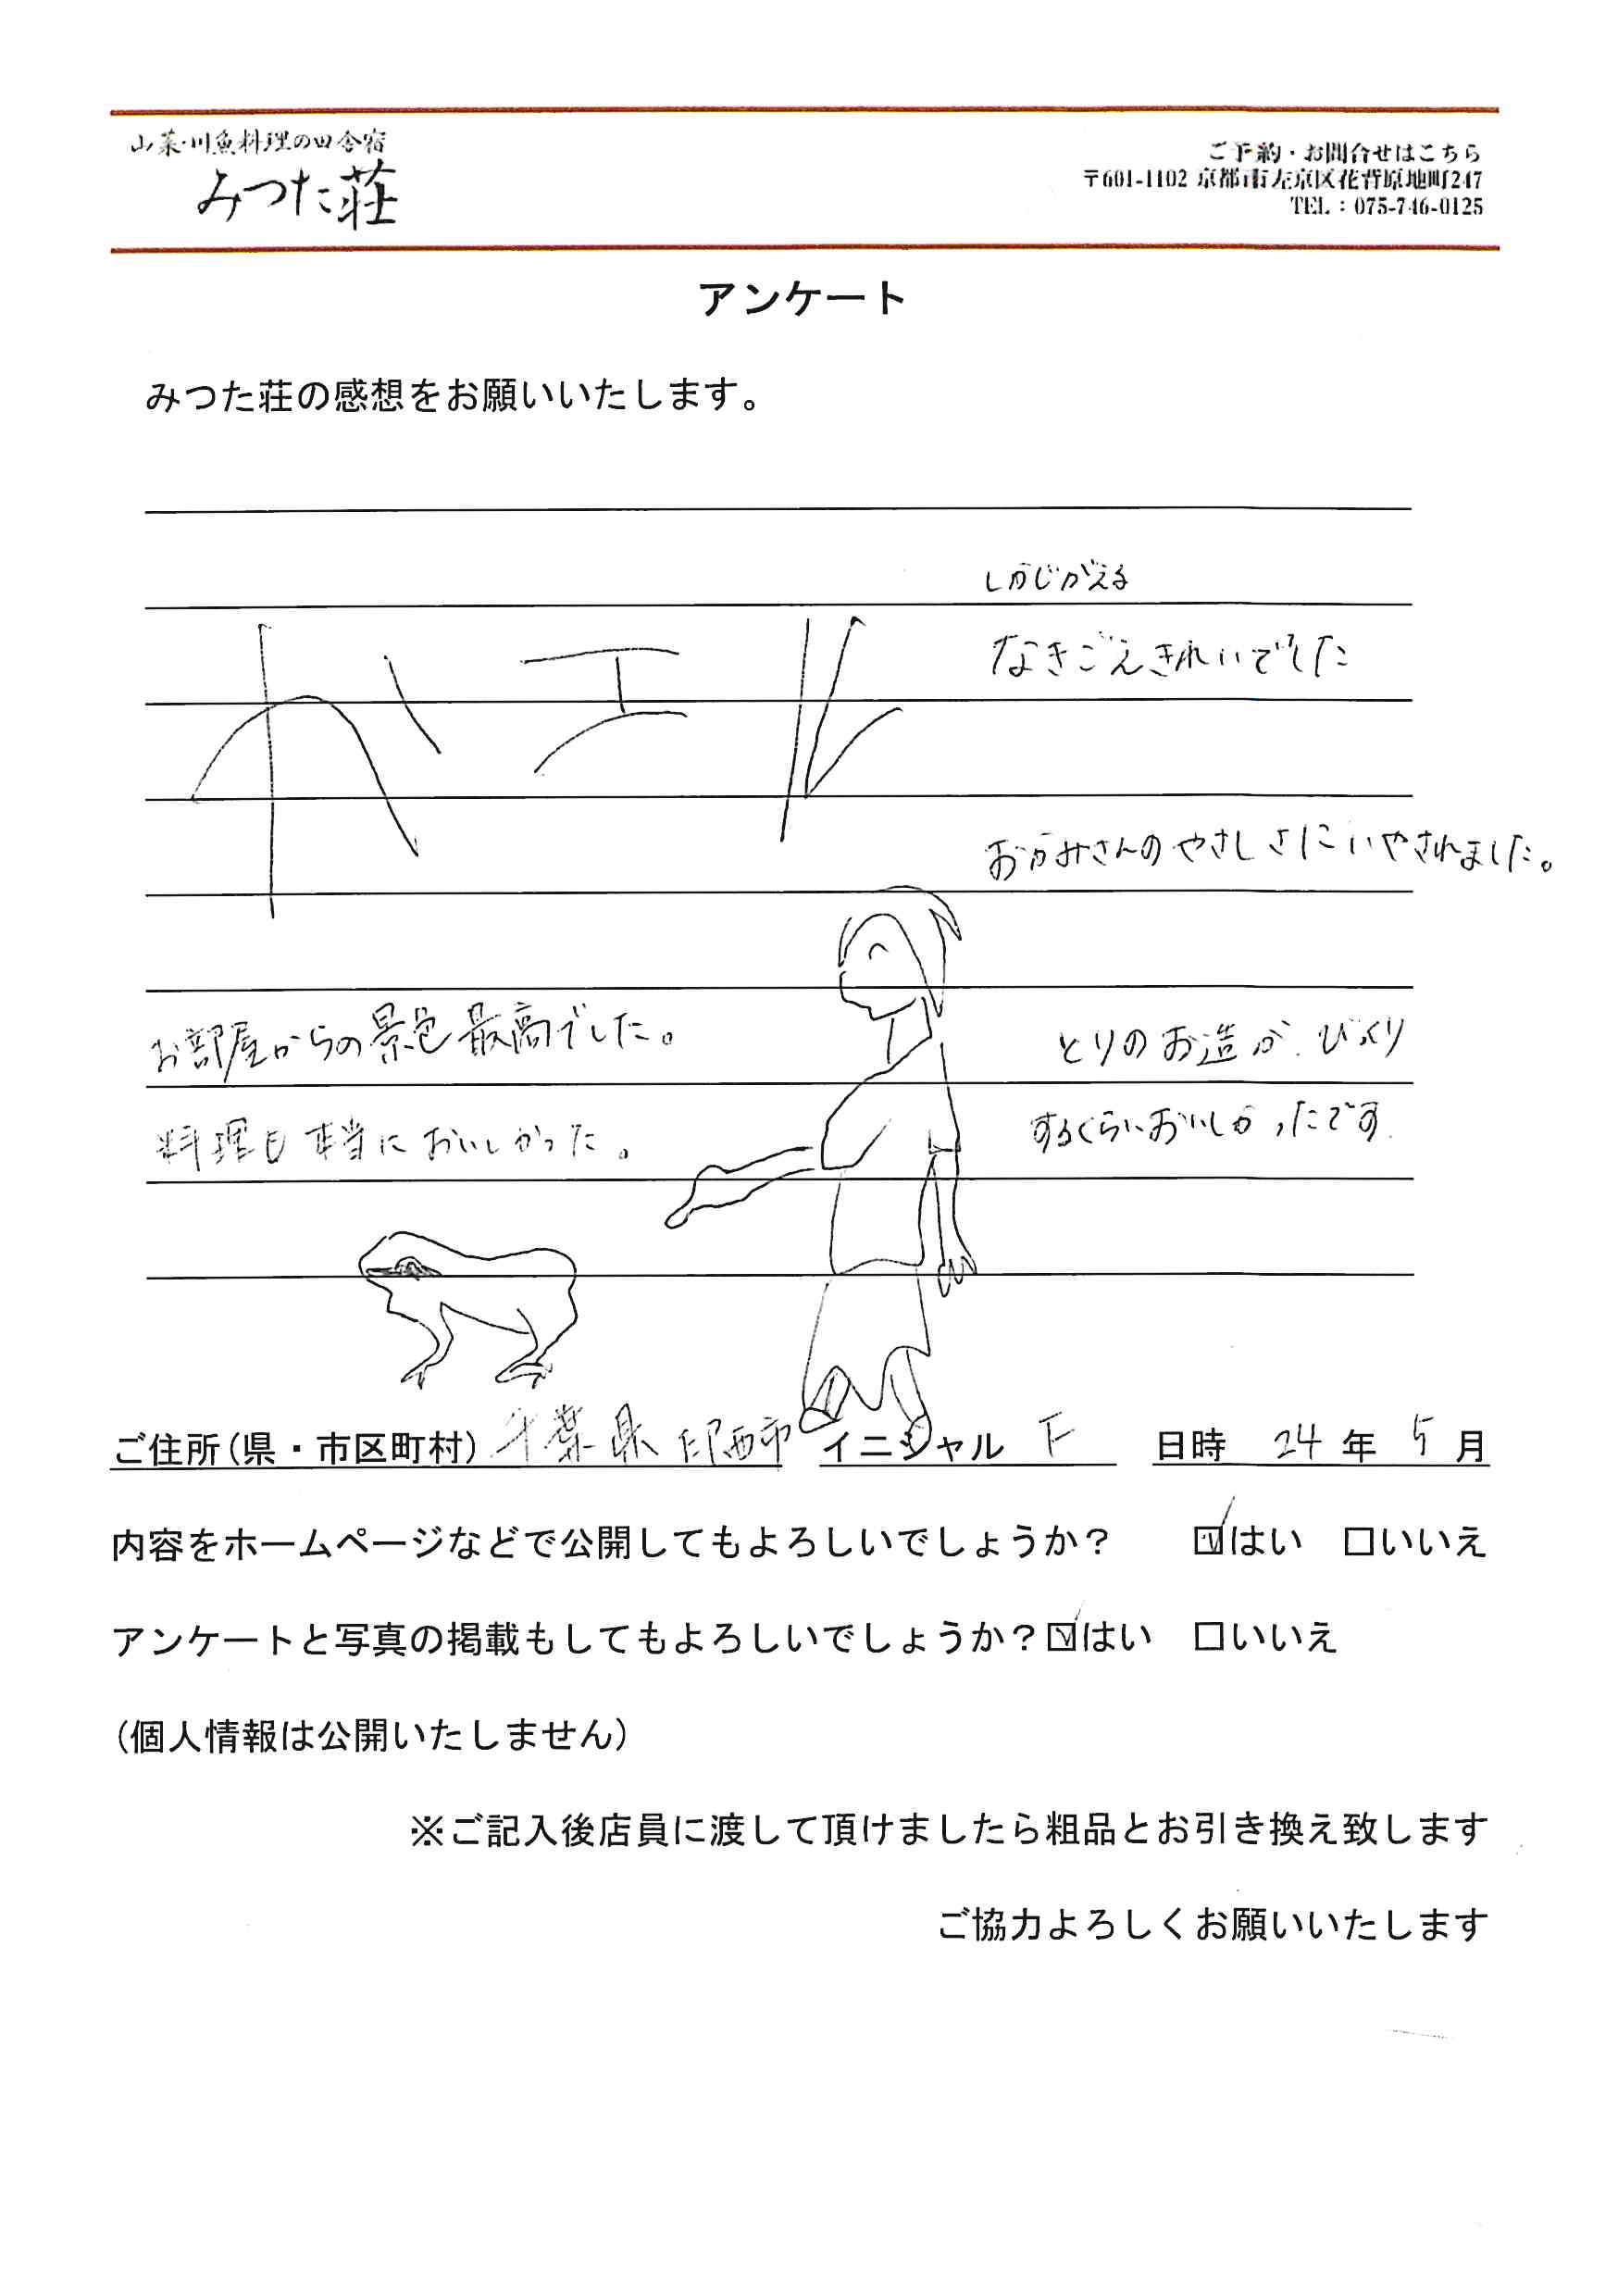 山菜・川魚料理の田舎宿
みつた荘
ご予約・お問合せはこちら
〒601-1102 京都市左京区花背原地町247
TEL：075-746-0125
アンケート
みつた荘の感想をお願いいたします。
しかじがえる
カエル
なきごえきれいでした
おかみさんのやさしさにいやされました。
お部屋からの景色最高でした。
料理も本当においしかった。
とりのお造が、びっくり
するくらいおいしかったです
ご住所(県・市区町村) 千葉県 印西市 イニシャル F 日時 24 年 5 月
内容をホームページなどで公開してもよろしいでしょうか？ ☑はい □いいえ
アンケートと写真の掲載もしてもよろしいでしょうか？☑はい □いいえ
(個人情報は公開いたしません)
※ご記入後店員に渡して頂けましたら粗品とお引き換え致します
ご協力よろしくお願いいたします